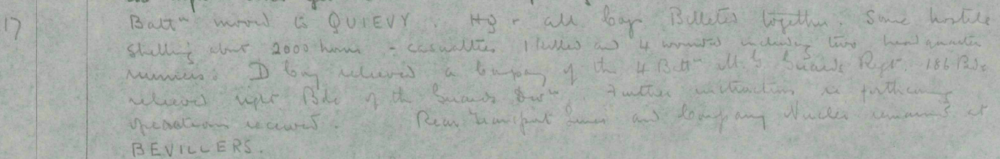 17 Battn moved to QUIEVY. HQ & all Coys Billeted together. Some hostile
shelling about 2000 hours - casualties 1 killed and 4 wounded including two headquarter
runners. D Coy relieved a Company of the 4 Battn M.G. Guards Regt 186 Bde
relieved right Bde of the Guards Divn. Further instructions re forthcoming
operations received. Rear Transport Lines and Company Nucleus remained at
BEVILLERS.